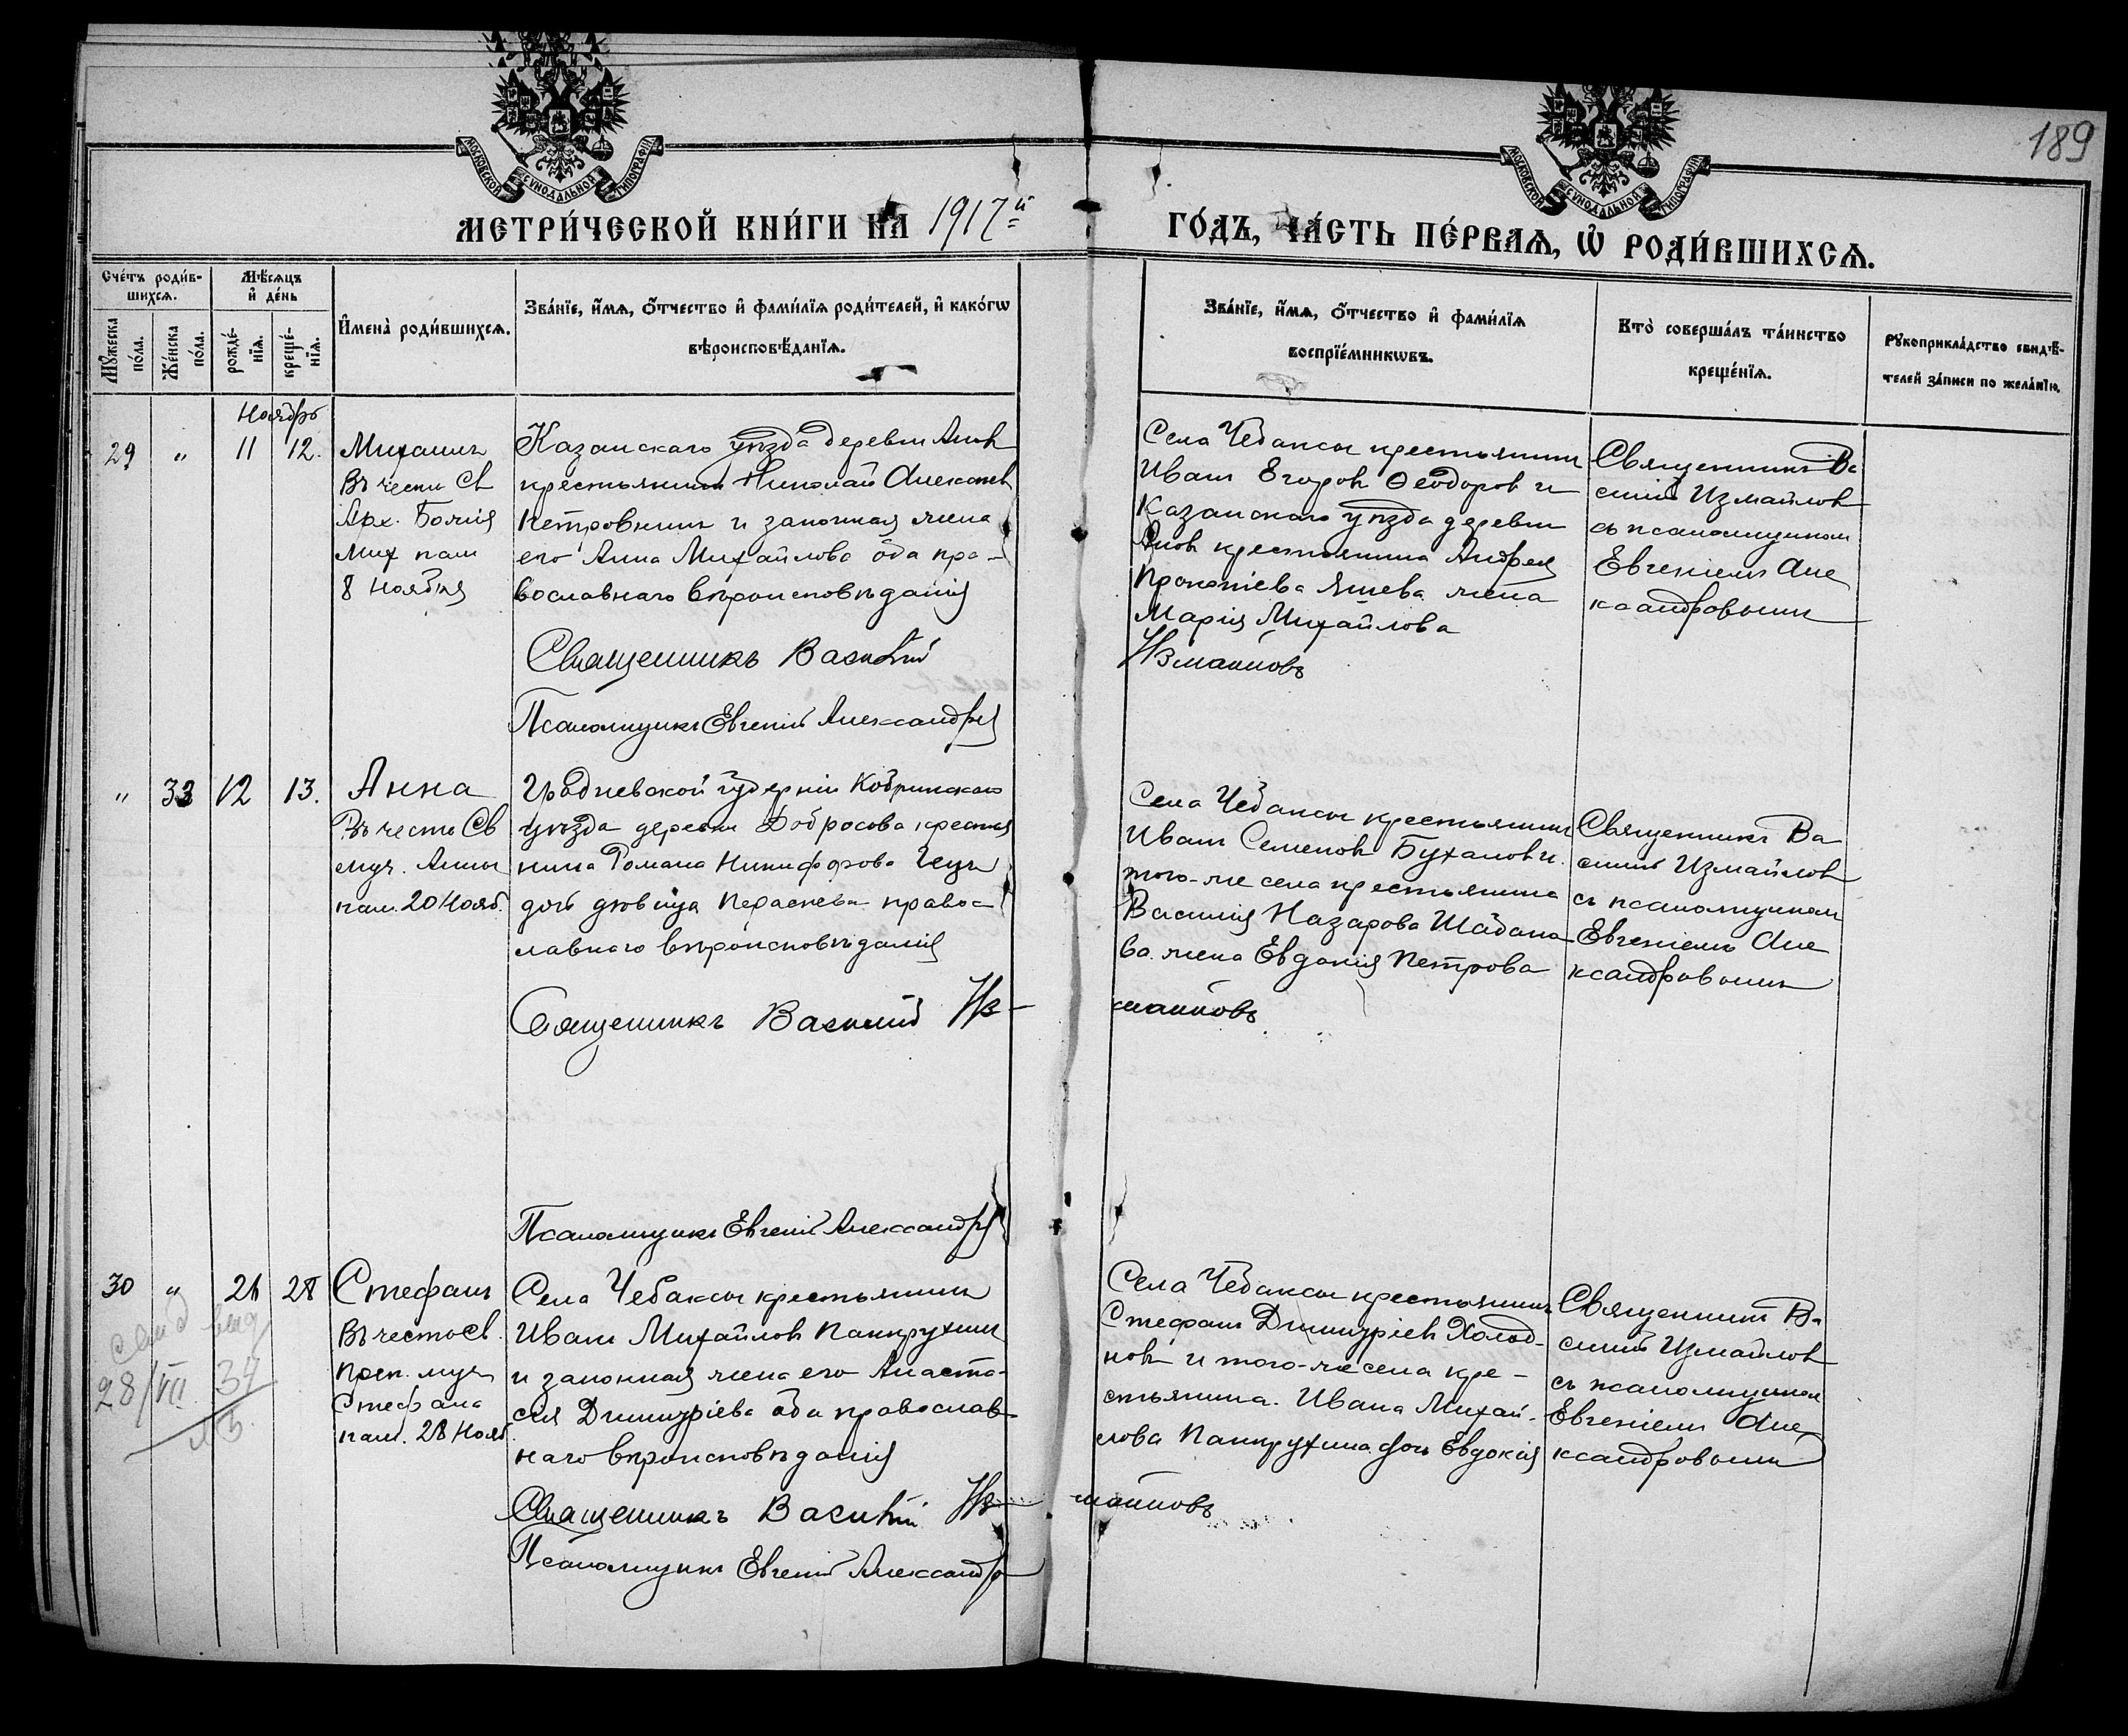 189
МОСКОВСКОЙ СѴНОДАЛЬНОЙ ТИПОГРАФІИ
МОСКОВСКОЙ СѴНОДАЛЬНОЙ ТИПОГРАФІИ
МЕТРИ́ЧЕСКОЙ КНИ́ГИ НА 1917й
ГО́ДЪ, ЧА́СТЬ ПЕ́РВАѦ, Ѽ РОДИ́ВШИХСѦ.
Сче́тъ роди́в-
шихсѧ.
Мꙋжеска по́ла.
Же́нска по́ла.
Мѣ́сѧцъ и҆ де́нь
рожде́-нїѧ.
креще́-нїѧ.
И҆мена̀ роди́вшихсѧ.
Зва́нїе, и҆́мѧ, ѻ҆́тчество и҆ фами́лїѧ роди́телей, и҆ како́гѡ
вѣроисповѣ́данїѧ.
Зва́нїе, и҆́мѧ, ѻ҆́тчество и҆ фами́лїѧ
воспрїе́мникѡвъ.
Кто̀ соверша́лъ та́инство
креще́нїѧ.
Рꙋкоприкла́дство свидѣ́-
телей за́писи по жела́нїю.
Ноябрь
29 " 11 12.
Михаилъ
Въ честь Св
Арх. Божія
Мих пам
8 Ноября
Казанскаго уѣзда деревни
крестьянинъ Николай Алексѣев
Петровнинъ и законная жена
его Анна Михайлова оба пра-
вославнаго вѣроисповѣданія
Священникъ Василій
Псаломщикъ Евгеній Александр
Села Чебаксы крестьянинъ
Иванъ Егоровъ Ѳеодоровъ и
Казанскаго уѣзда деревни
крестьянина Андрея
Прокопіева жена
Марія Михайлова
Измайловъ
Священникъ Ва
силій Измайловъ
съ псаломщикомъ
Евгеніемъ Але
ксандровымъ
" 33 12 13.
Анна
Въ честь Св
муч. Анны
пам. 20 Нояб.
Гродневской губерніи Кобринскаго
уѣзда деревни Добросова крестья
нина Романа Никифорова
дочь дѣвица Параскева правос
лавнаго вѣроисповѣданія
Священникъ Василій Из-
Псаломщикъ Евгеній Александр
Села Чебаксы крестьянинъ
Иванъ Семеновъ Бухаловъ и
того-же села крестьянина
Василія Назарова Шабала
ва жена Евдокія Петрова
майловъ
Священникъ Ва
силій Измайловъ
съ псаломщикомъ
Евгеніемъ Але
ксандровымъ
30 " 28
Стефанъ
Въ честь Св.
Преп. муч
Стефана
пам. 28 Нояб.
28/VII 34
Села Чебаксы крестьянинъ
Иванъ Михайловъ Панкрухинъ
и законная жена его Анаста-
сія Димитріева оба православ-
наго вѣроисповѣданія
Священникъ Василій Из
Псаломщикъ Евгеній Александр
Села Чебаксы крестьянинъ
Стефанъ Димитріевъ Холод-
новъ и того-же села кре-
стьянина Ивана Михай-
лова Панкрухина дочь Евдокія
майловъ
Священникъ Ва
силій Измайловъ
съ псаломщикомъ
Евгеніемъ Але
ксандровымъ